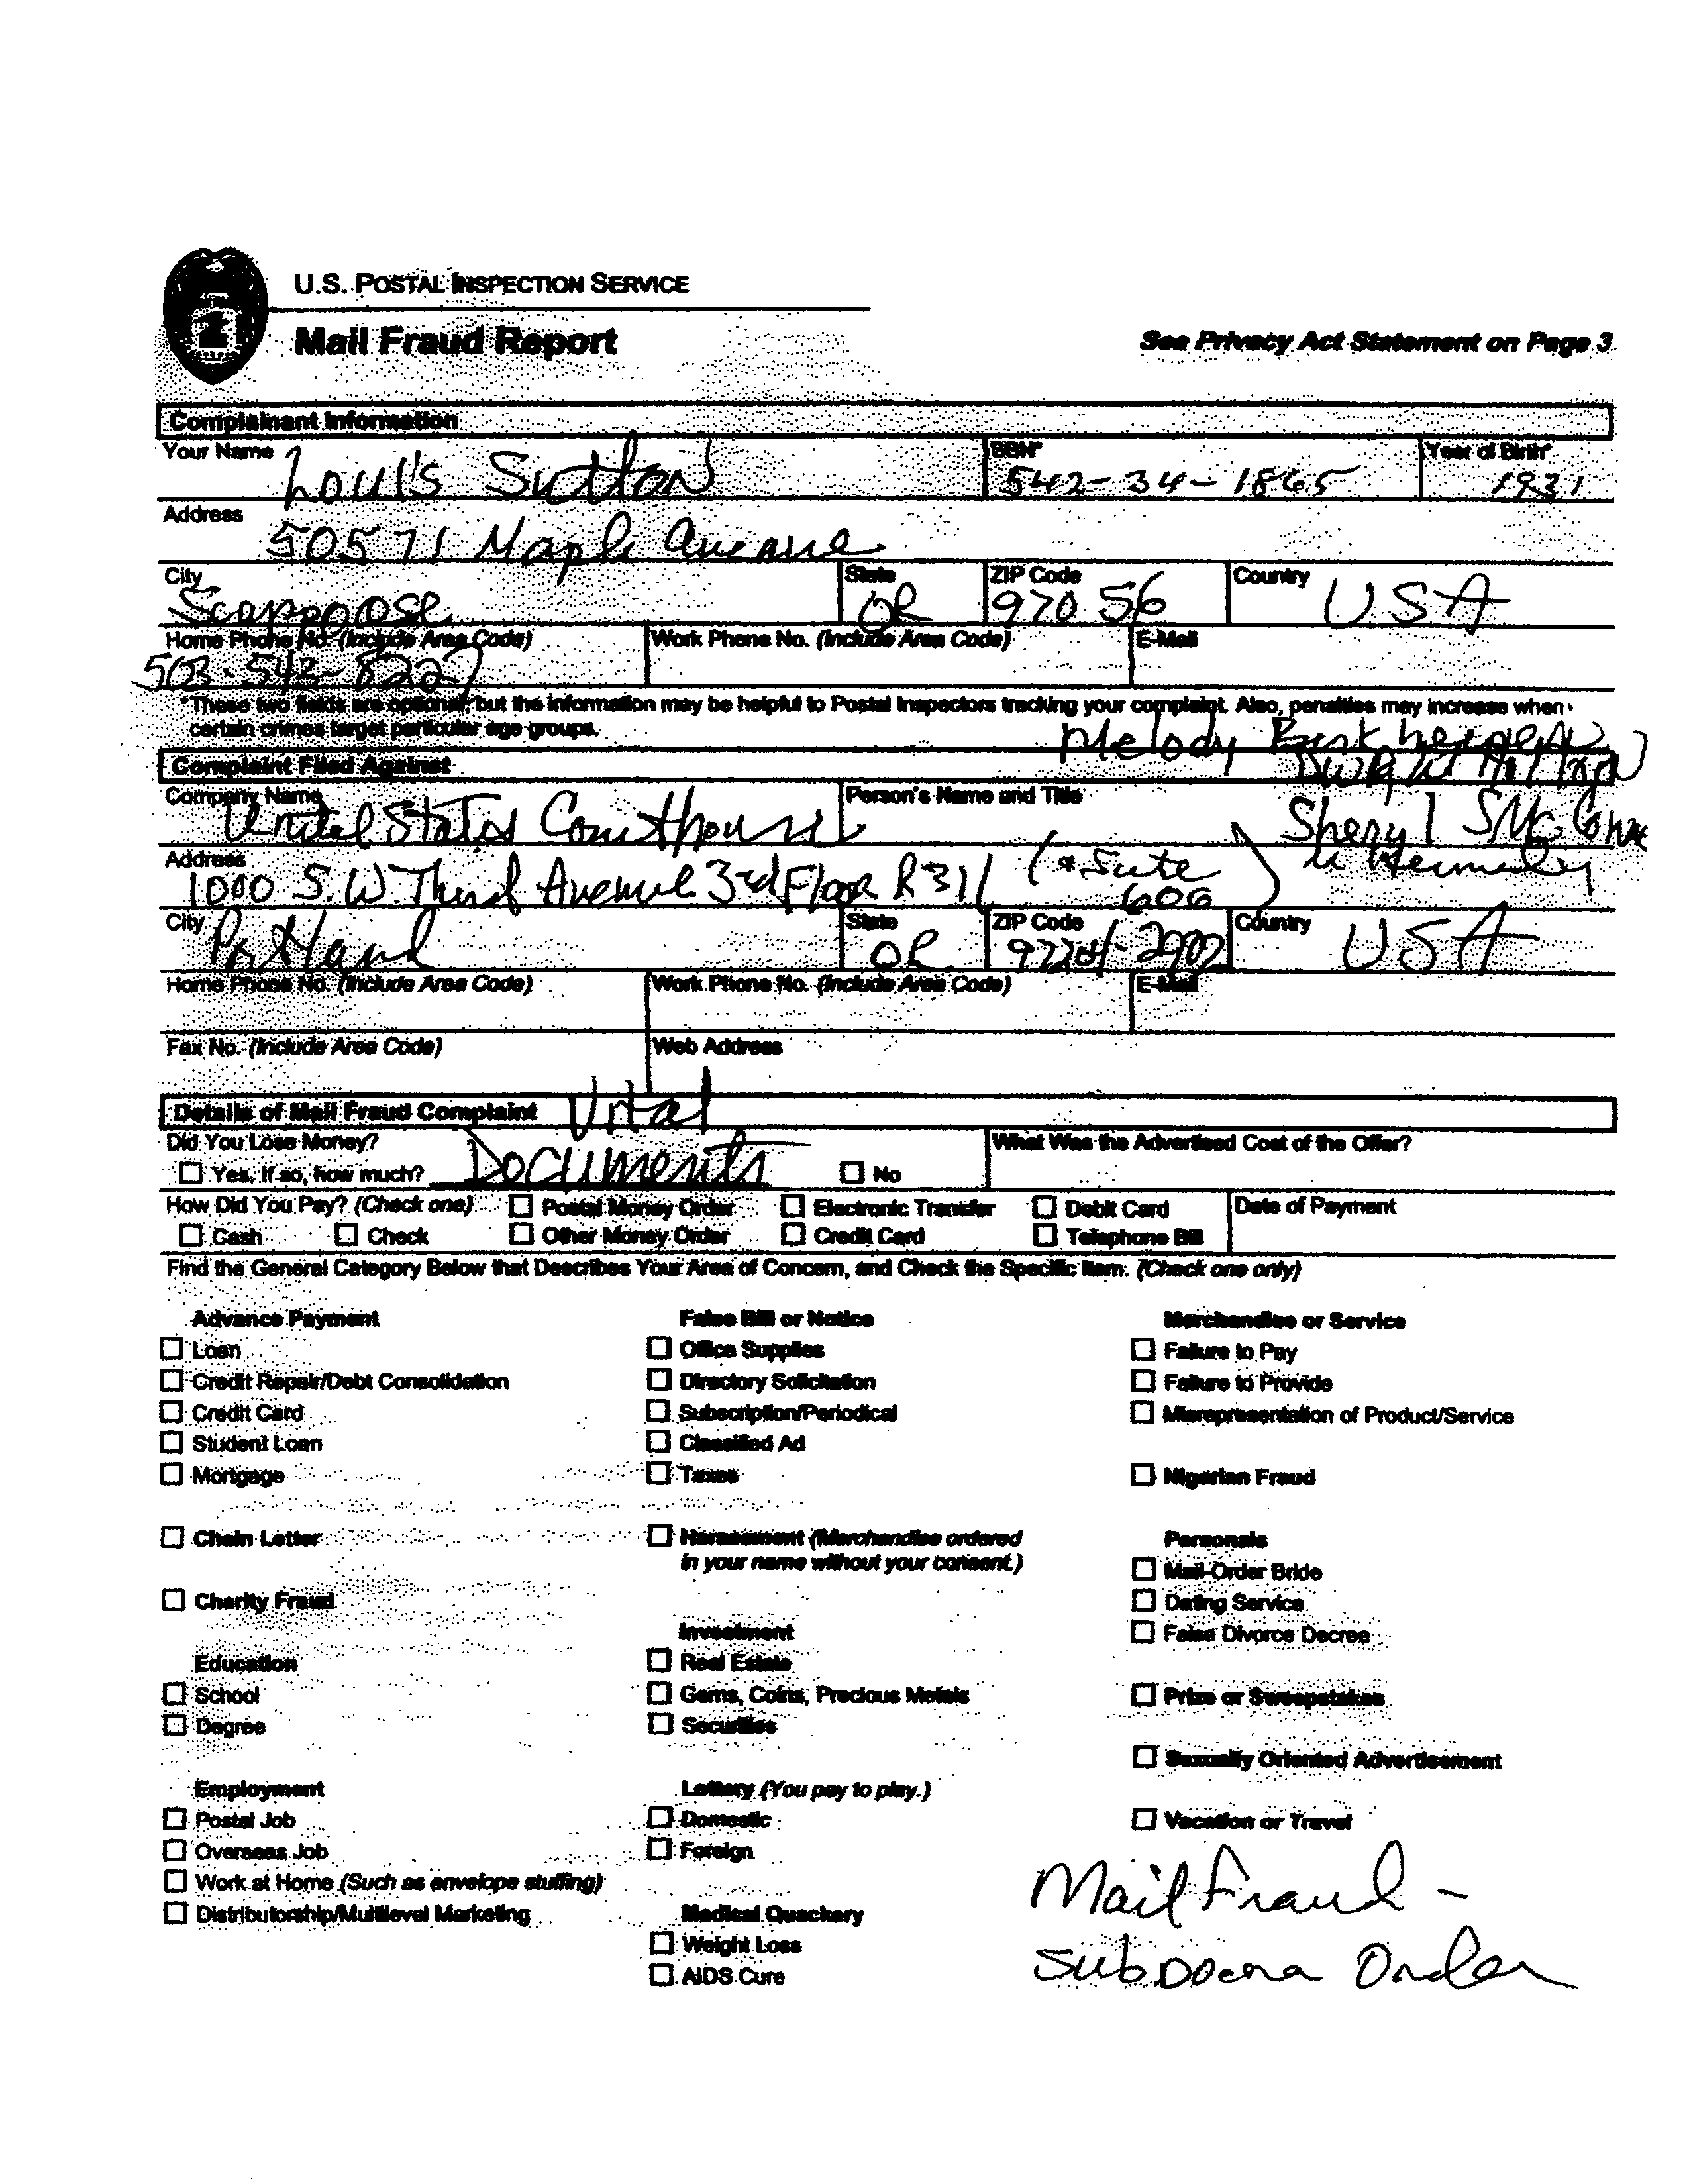 U.S. POSTAL INSPECTION SERVICE
Mail Fraud Report
See Privacy Act Statement on Page 3
Complainant Information
Your Name Louis Sutton
SSN* 542-34-1865
Year of Birth* 1931
Address 50571 Maple Avenue
City Scappoose
State OR
ZIP Code 97056
Country USA
Home Phone No. (Include Area Code) 503-543-8227
Work Phone No. (Include Area Code)
E-Mail
*These two fields are optional, but the information may be helpful to Postal Inspectors tracking your complaint. Also, penalties may increase when
certain crimes target particular age groups.
Melody
Complaint Filed Against
Dwight
Company Name United States Courthouse
Person's Name and Title
Sheryl S
Address 1000 S.W. Third Avenue 3rd Floor R 311 (* Suite 600)
City Portland
State OR
ZIP Code 97204-2902
Country USA
Home Phone No. (Include Area Code)
Work Phone No. (Include Area Code)
E-Mail
Fax No. (Include Area Code)
Web Address
Details of Mail Fraud Complaint
Vital
Did You Lose Money?
Yes, if so, how much? Documents
No
What Was the Advertised Cost of the Offer?
How Did You Pay? (Check one)
Postal Money Order
Electronic Transfer
Debit Card
Date of Payment
Cash
Check
Other Money Order
Credit Card
Telephone Bill
Find the General Category Below that Describes Your Area of Concern, and Check the Specific Item. (Check one only)
Advance Payment
Loan
Credit Repair/Debt Consolidation
Credit Card
Student Loan
Mortgage
Chain Letter
Charity Fraud
Education
School
Degree
Employment
Postal Job
Overseas Job
Work at Home (Such as envelope stuffing)
Distributorship/Multilevel Marketing
False Bill or Notice
Office Supplies
Directory Solicitation
Subscription/Periodical
Classified Ad
Taxes
Harassment (Merchandise ordered
in your name without your consent.)
Investment
Real Estate
Gems, Coins, Precious Metals
Securities
Lottery (You pay to play.)
Domestic
Foreign
Medical Quackery
Weight Loss
AIDS Cure
Merchandise or Service
Failure to Pay
Failure to Provide
Misrepresentation of Product/Service
Nigerian Fraud
Personals
Mail-Order Bride
Dating Service
False Divorce Decree
Prize or Sweepstakes
Sexually Oriented Advertisement
Vacation or Travel
Mail Fraud -
Subpoena Order